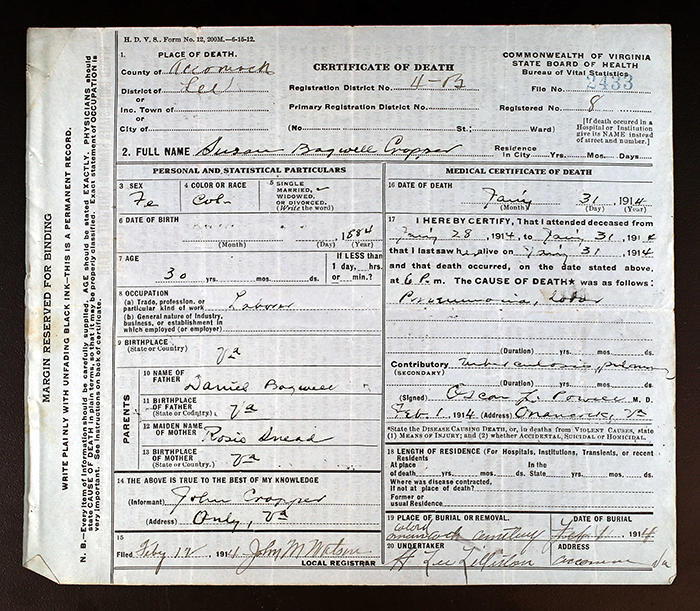 H. D. V. S.. Form No. 12, 200M.—6-15-12.
MARGIN RESERVED FOR BINDING
WRITE PLAINLY WITH UNFADING BLACK INK—THIS IS A PERMANENT RECORD.
N. B.—Every item of information should be carefully supplied. AGE should be stated EXACTLY. PHYSICIANS should
state CAUSE OF DEATH in plain terms, so that it may be properly classified. Exact statement of OCCUPATION is
very important. See instructions on back of certificate.
1. PLACE OF DEATH.
County of Accomack
District of Lee
or
Inc. Town of
or
City of
CERTIFICATE OF DEATH
Registration District No. 11-B
Primary Registration District No.
(No. St.; Ward)
COMMONWEALTH OF VIRGINIA
STATE BOARD OF HEALTH
Bureau of Vital Statistics
File No. 2433
Registered No. 8
[If death occured in a
Hospital or Institution
give its NAME instead
of street and number.]
2. FULL NAME Susan Bagwell Cropper
Residence
In City Yrs. Mos. Days
PERSONAL AND STATISTICAL PARTICULARS
3 SEX
Fe
4 COLOR OR RACE
Col
5 SINGLE
MARRIED,
WIDOWED,
OR DIVORCED.
(Write the word)
6 DATE OF BIRTH
1884
(Month) (Day) (Year)
7 AGE
30 yrs. mos. ds.
If LESS than
1 day, hrs.
or min.?
8 OCCUPATION
(a) Trade, profession, or
particular kind of work Laborer
(b) General nature of Industry,
business, or establishment in
which employed (or employer)
9 BIRTHPLACE
(State or Country) Va
PARENTS
10 NAME OF
FATHER Daniel Bagwell
11 BIRTHPLACE
OF FATHER
(State or Country) Va
12 MAIDEN NAME
OF MOTHER Rosie Snead
13 BIRTHPLACE
OF MOTHER
(State or Country) Va
14 THE ABOVE IS TRUE TO THE BEST OF MY KNOWLEDGE
(Informant) John Cropper
(Address) Only, Va
15
Filed Feby 12 1914 John M Watson
LOCAL REGISTRAR
MEDICAL CERTIFICATE OF DEATH
16 DATE OF DEATH
Jany 31 1914
(Month) (Day) (Year)
17 I HEREBY CERTIFY, That I attended deceased from
Jany 28, 1914 to Jany 31, 1914
that I last saw her alive on Jany 31 1914
and that death occurred, on the date stated above,
at 6 P. m. The CAUSE OF DEATH★ was as follows:
Pneumonia, Lobar
(Duration) yrs. mos. ds.
Contributory Tuberculosis, pulmonary
(SECONDARY)
(Duration) yrs. mos. ds.
(Signed) Oscar L. Powell M. D.
Feb. 1, 1914 (Address) Onancock, Va
*State the DISEASE CAUSING DEATH, or, in deaths from VIOLENT CAUSES, state
(1) MEANS OF INJURY; and (2) whether ACCIDENTAL, SUICIDAL OR HOMICIDAL.
18 LENGTH OF RESIDENCE (For Hospitals, Institutions, Transients, or recent
Residents
At place In the
of death yrs. mos. ds. State yrs. mos. ds.
Where was disease contracted,
if not at place of death?
Former or
usual Residence
19 PLACE OF BURIAL OR REMOVAL. DATE OF BURIAL
Colord
cemetery Feb 1 1914
20 UNDERTAKER ADDRESS
H Lee Lilliston Accomac Va